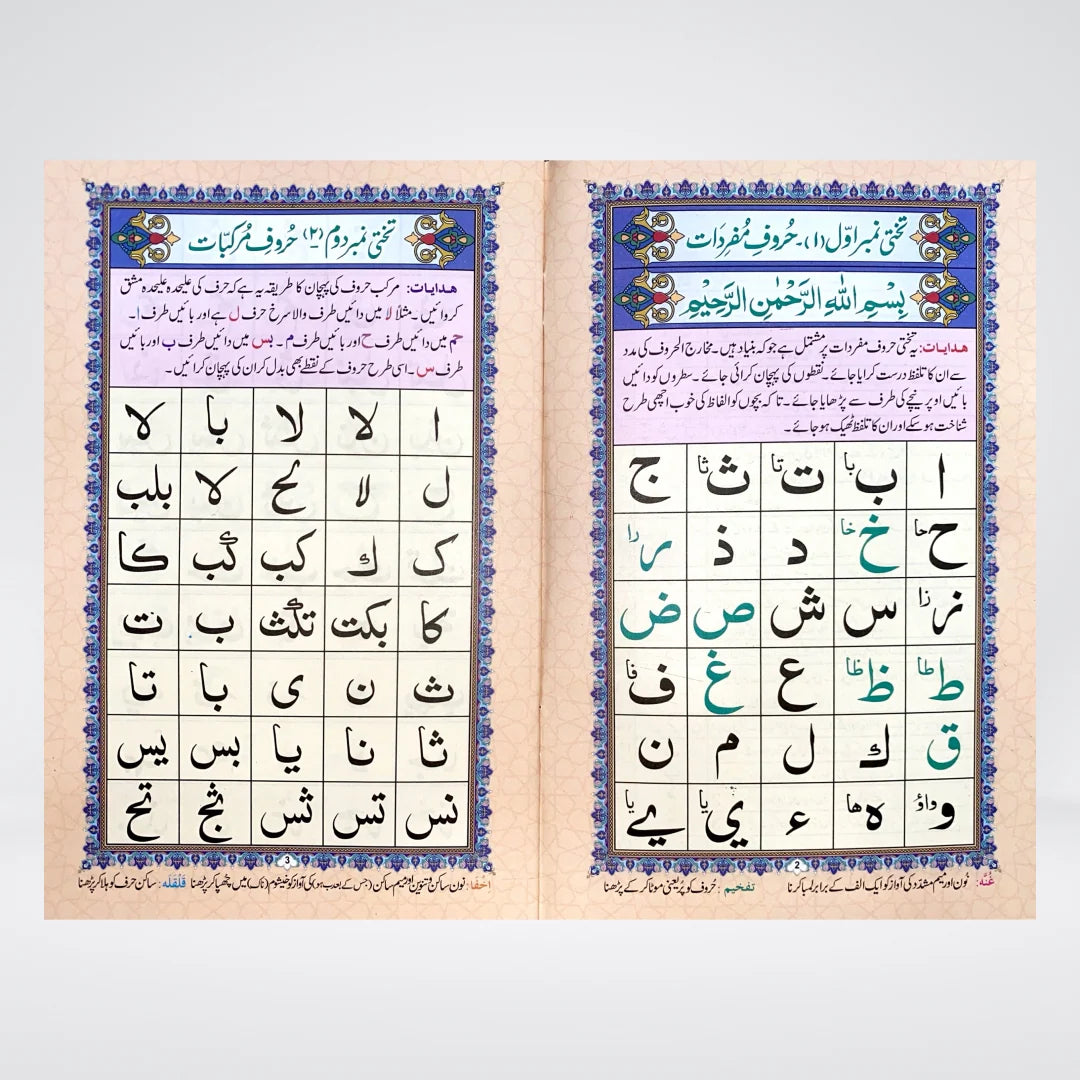 تختی نمبر اوّل (۱)۔ حُروفِ مُفرِدَات
بِسْمِ اللهِ الرَّحْمٰنِ الرَّحِيْمِ
ھدایات: یہ تختی حروف مفردات پر مشتمل ہے جو کہ بنیاد ہیں۔ مخارج الحروف کی مدد
سے ان کا تلفظ درست کرایا جائے۔ نقطوں کی پہچان کرائی جائے۔ سطروں کو دائیں
بائیں اوپر نیچے کی طرف سے پڑھایا جائے۔ تا کہ بچوں کو الفاظ کی خوب اچھی طرح
شناخت ہو سکے اور ان کا تلفظ ٹھیک ہو جائے۔
ا ب با ت تا ث ثا ج
ح حا خ خا د ذ ر را
ز زا س ش ص ض
ط طا ظ ظا ع غ ف فا
ق ك ل م ن
و واؤ ه ھا ء ي یا ے یا
2
غُنَّہ: نُون اور میم مشدّد کی آواز کو ایک الف کے برابر لمبا کرنا تفخیم: حروف کو پُر یعنی موٹا کر کے پڑھنا
تختی نمبر دوم (۲) حُروفِ مُرکبّات
ھدایات: مرکب حروف کی پہچان کا طریقہ یہ ہے کہ حرف کی علیحدہ علیحدہ مشق
کروائیں۔ مثلاً لا میں دائیں طرف والا سرخ حرف ل ہے اور بائیں طرف ا۔
حم میں دائیں طرف ح اور بائیں طرف م۔ بس میں دائیں طرف ب اور بائیں
طرف س۔ اسی طرح حروف کے نقطے بھی بدل کر ان کی پہچان کرائیں۔
ا لا لا با لا
ل لا لح لا بلب
ک ك کب کب کا
کا بکت تکث ب ت
ث ن ی با تا
ثا نا یا بس یس
نس تس ثس ثج تح
3
اخفا: نون ساکن و تنوین اور میم ساکن (جس کے بعد ب ہو) کی آواز کو خیشوم (ناک) میں چھپا کر پڑھنا قلقلہ: ساکن حرف کو ہلا کر پڑھنا